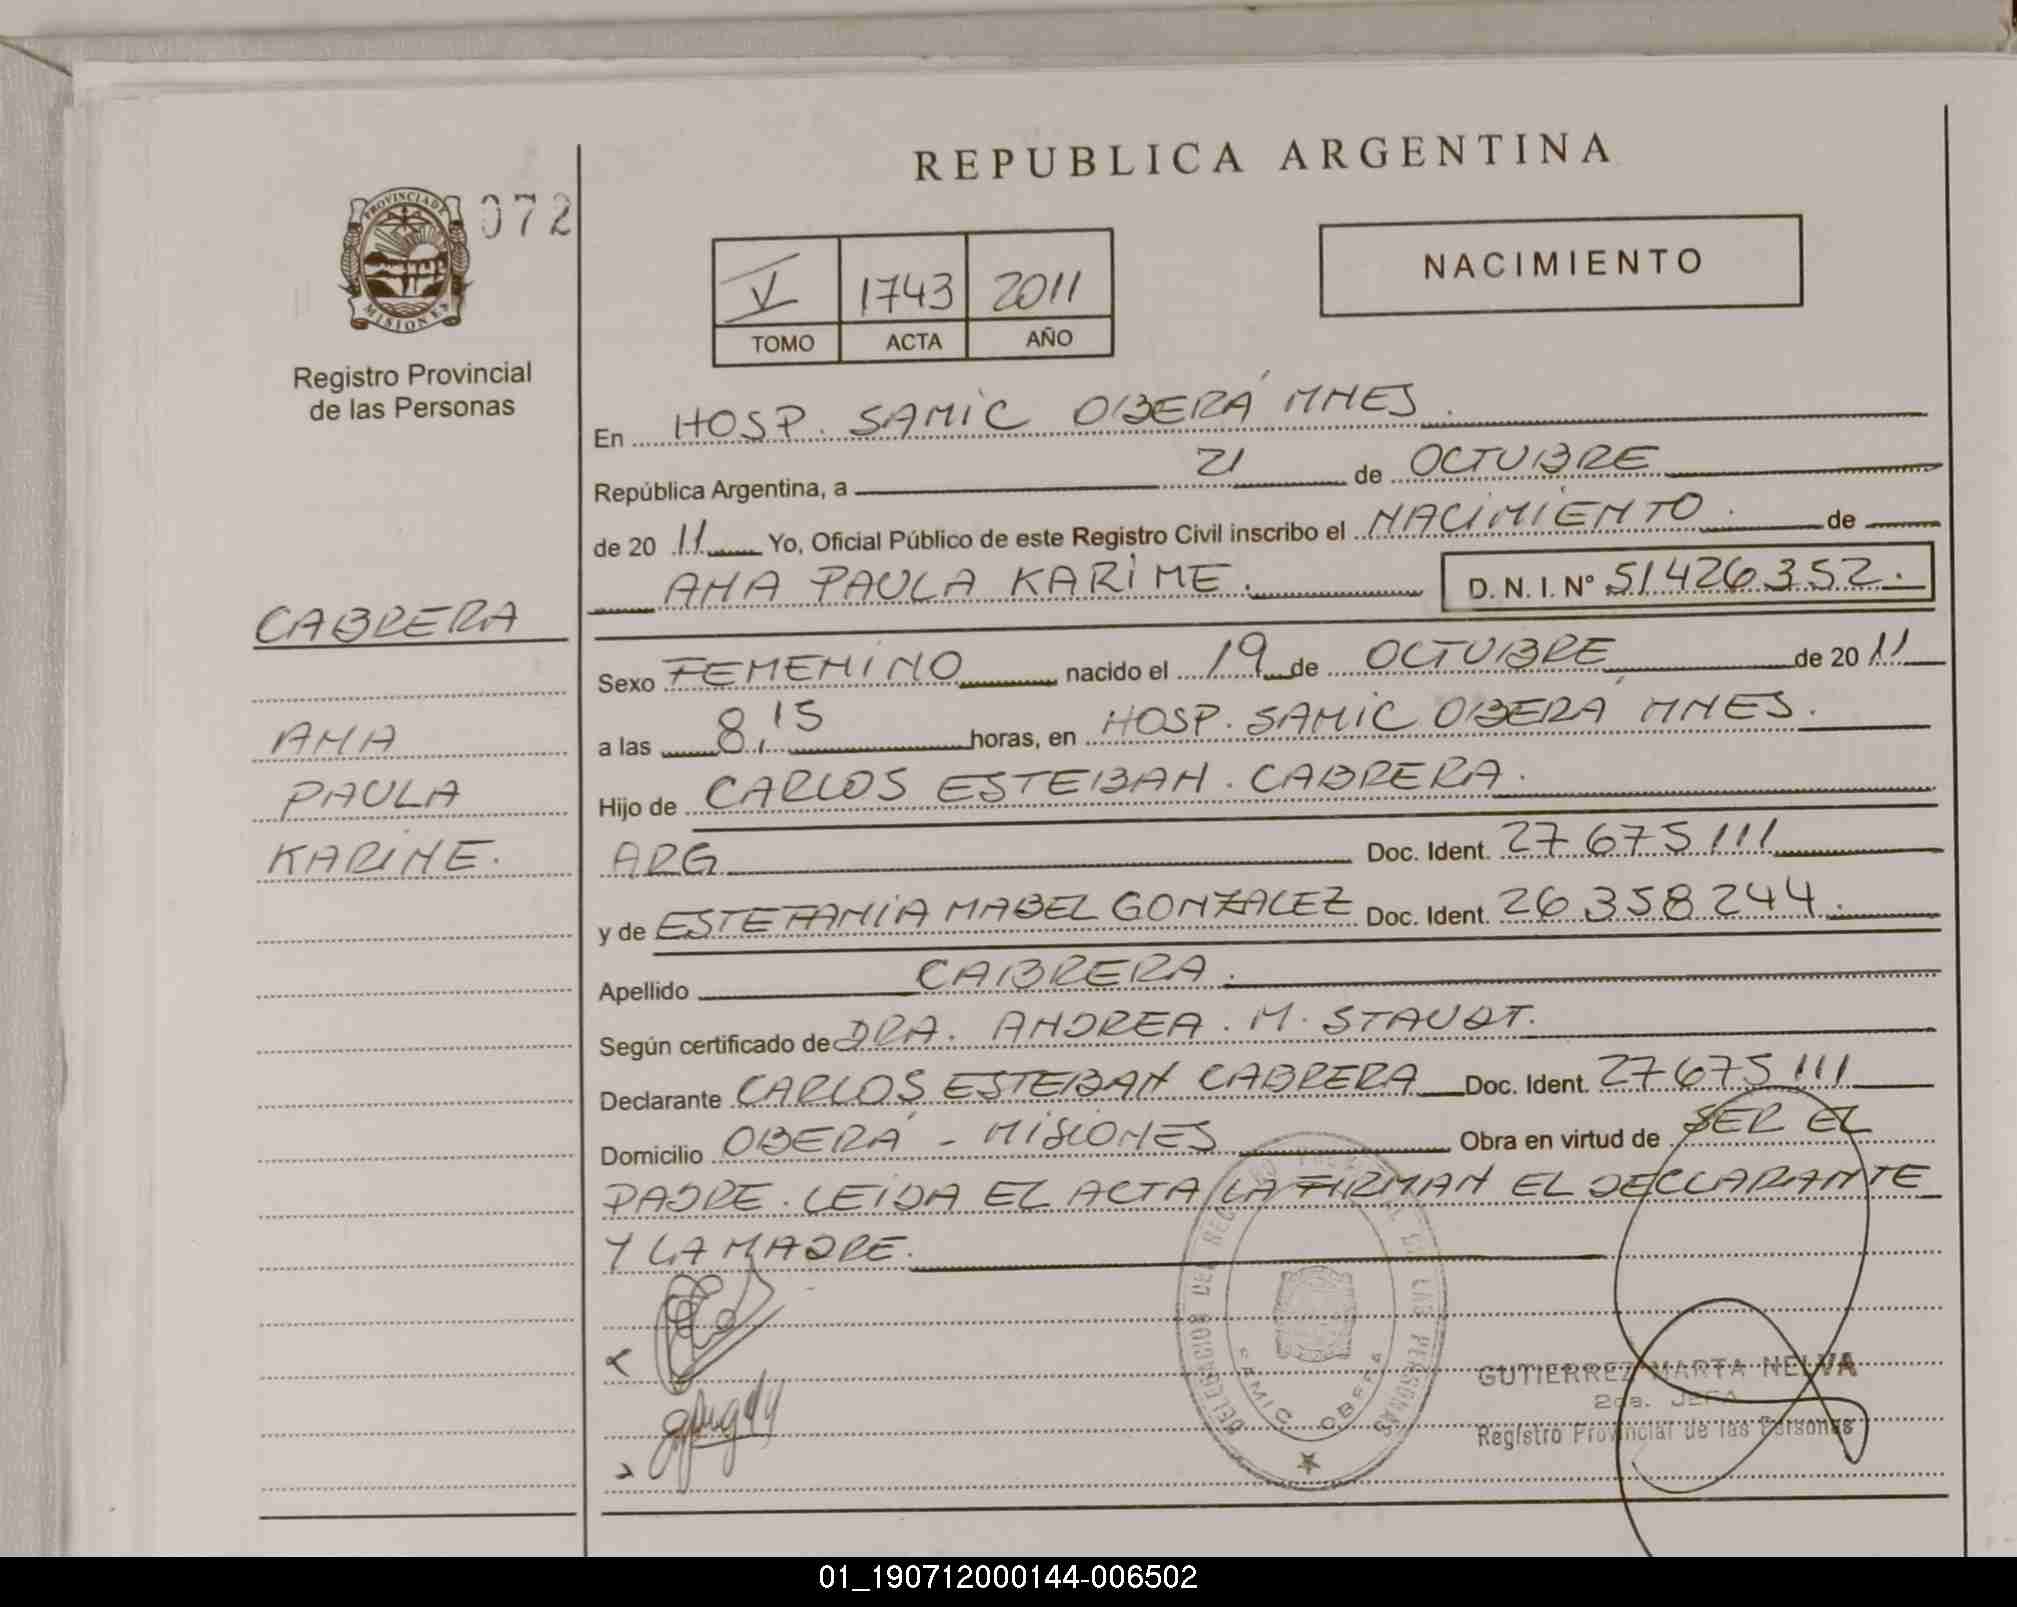 REPUBLICA ARGENTINA
PROVINCIA DE MISIONES
072
Registro Provincial
de las Personas
V 1743 2011
TOMO ACTA AÑO
NACIMIENTO
En HOSP. SAMIC OBERÁ MNES.
República Argentina, a 21 de OCTUBRE
de 2011 Yo, Oficial Público de este Registro Civil inscribo el NACIMIENTO. de
ANA PAULA KARINE. D. N. I. Nº 51426352.
CABRERA
Sexo FEMENINO nacido el 19 de OCTUBRE de 2011
ANA
a las 8,15 horas, en HOSP. SAMIC OBERÁ MNES.
PAULA
Hijo de CARLOS ESTEBAN. CABRERA.
KARINE.
ARG Doc. Ident. 27675111
y de ESTEFANIA MABEL GONZALEZ Doc. Ident. 26358244.
Apellido CABRERA.
Según certificado de DRA. ANDREA. M. STAUDT.
Declarante CARLOS ESTEBAN CABRERA Doc. Ident. 27675111
Domicilio OBERÁ - MISIONES Obra en virtud de SER EL
PADRE. LEIDA EL ACTA LA FIRMAN EL DECLARANTE
Y LA MADRE.
DELEGACION DEL REGISTRO PROVINCIAL DE LAS PERSONAS
SAMIC OBERA
GUTIERREZ MARTA NELVA
2da. JEFA
Registro Provincial de las Personas
01_190712000144-006502